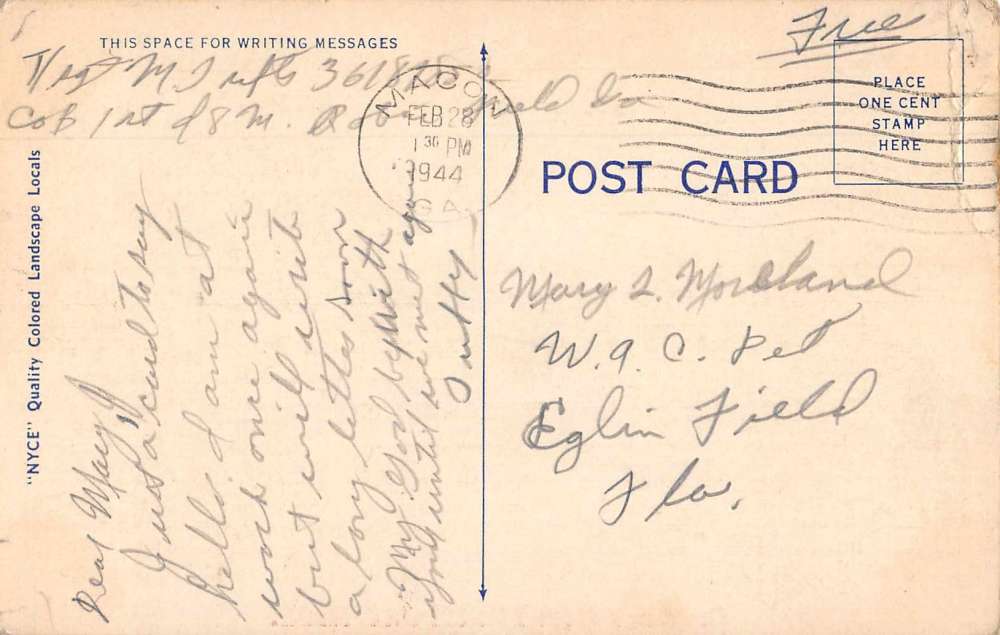 THIS SPACE FOR WRITING MESSAGES
Free
PLACE
ONE CENT
STAMP
HERE
MACON
FEB 28
1 30 PM
1944
GA.
POST CARD
"NYCE" Quality Colored Landscape Locals
Dear Mary
Just a card to say
hello I am at
work once again
but will write
a long letter soon
My God be with
you until we met again
Mary L. Moreland
W.A.C. Det
Eglin Field
Fla.